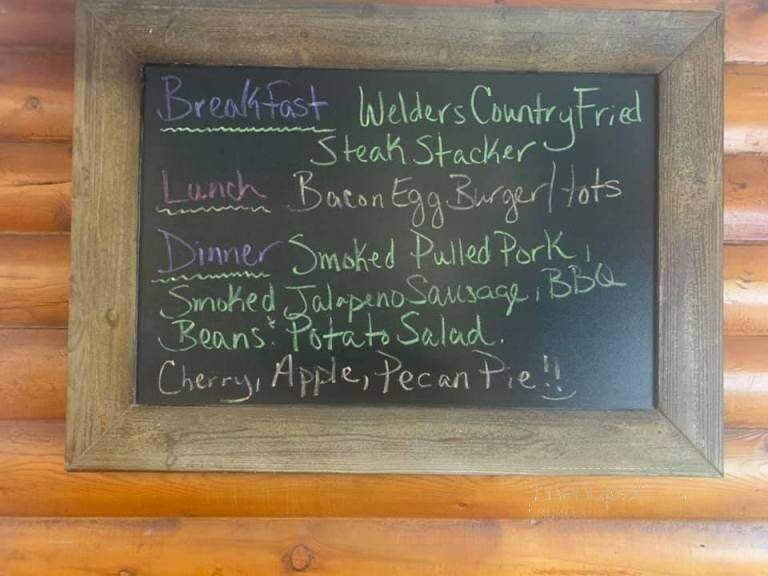 Breakfast Welders Country Fried
Steak Stacker
Lunch Bacon Egg Burger/tots
Dinner Smoked Pulled Pork,
Smoked Jalapeno Sausage, BBQ
Beans & Potato Salad.
Cherry, Apple, Pecan Pie!!